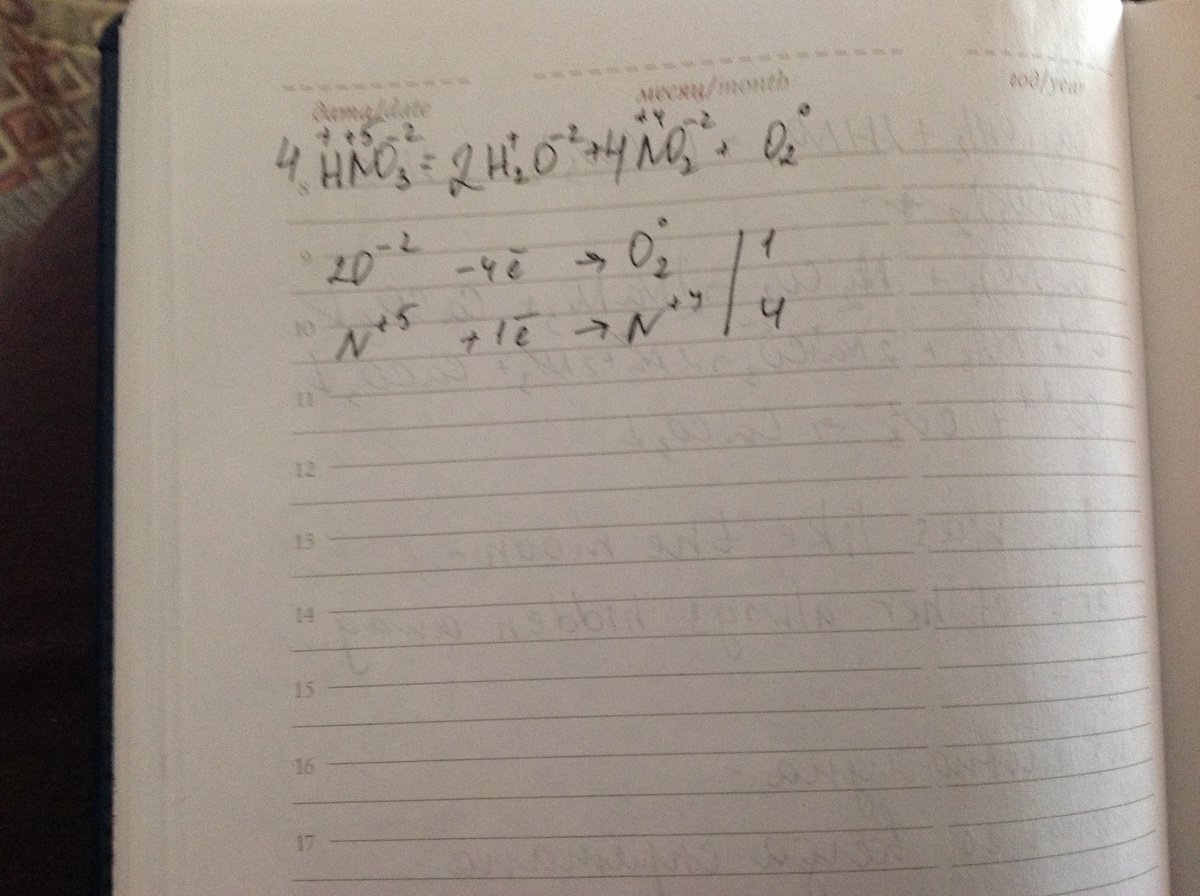 дата/date месяц/month год/year
4 H⁺N⁺⁵O₃⁻² = 2H₂⁺O⁻² + 4N⁺⁴O₂⁻² + O₂⁰
8
9 2O⁻² -4ē → O₂⁰ | 1
10 N⁺⁵ +1ē → N⁺⁴ | 4
11
12
13
14
15
16
17